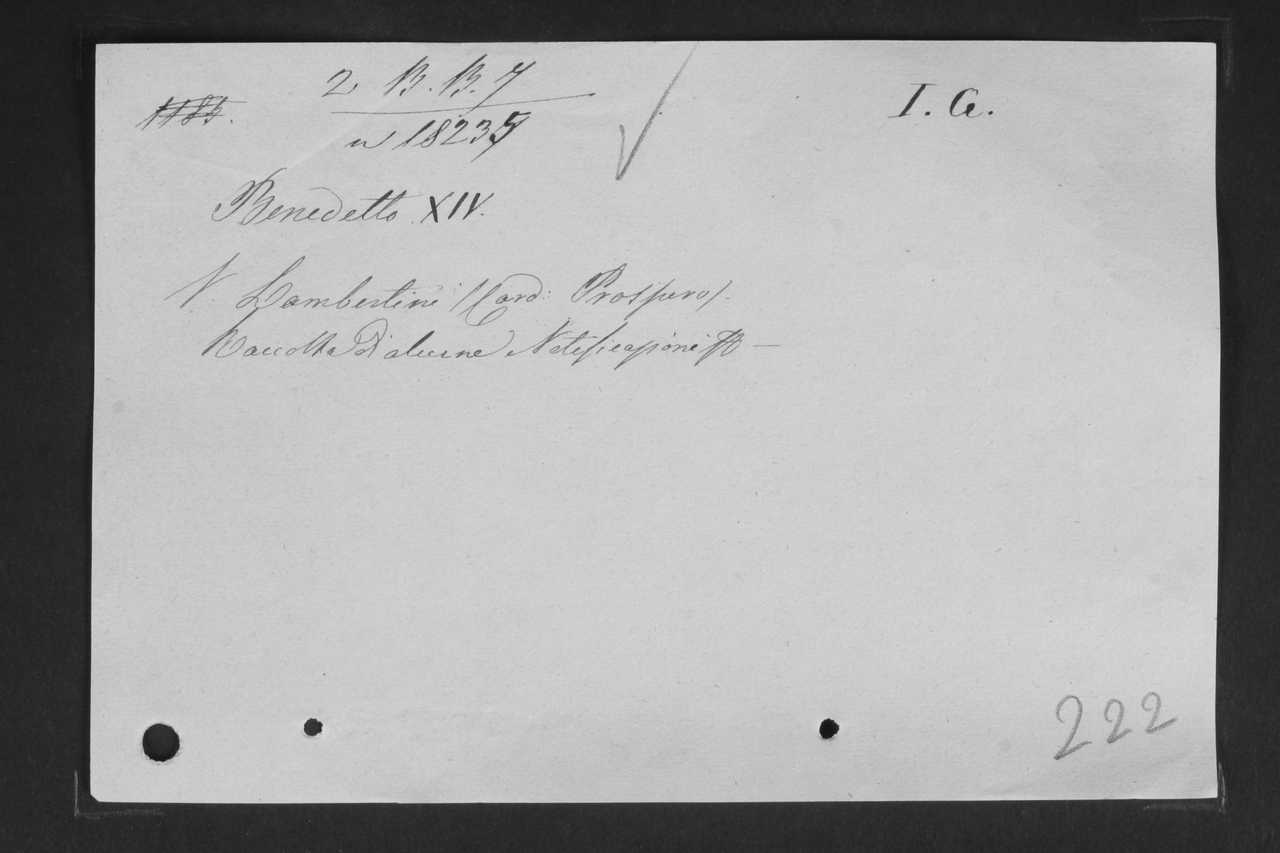 2 B. B. 7
I. G.
n 18235
Benedetto XIV.
V. Lambertini (Card: Prospero).
Raccolta di alcune Notificazioni
222